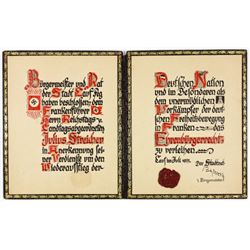 Bürgermeister und Rat
der Stadt
haben beschlossen, dem
Frankenführer
Herrn Reichstags- u.
Landtagsabgeordneten
Julius Streicher
in Anerkennung
seiner Verdienste um den
Wiederaufstieg der
Deutschen Nation
und im Besonderen als
dem unermüdlichen
Vorkämpfer der
deutschen Freiheitsbewegung
in Franken das
Ehrenbürgerrecht
zu verleihen.
Der Stadtrat
1. Bürgermeister